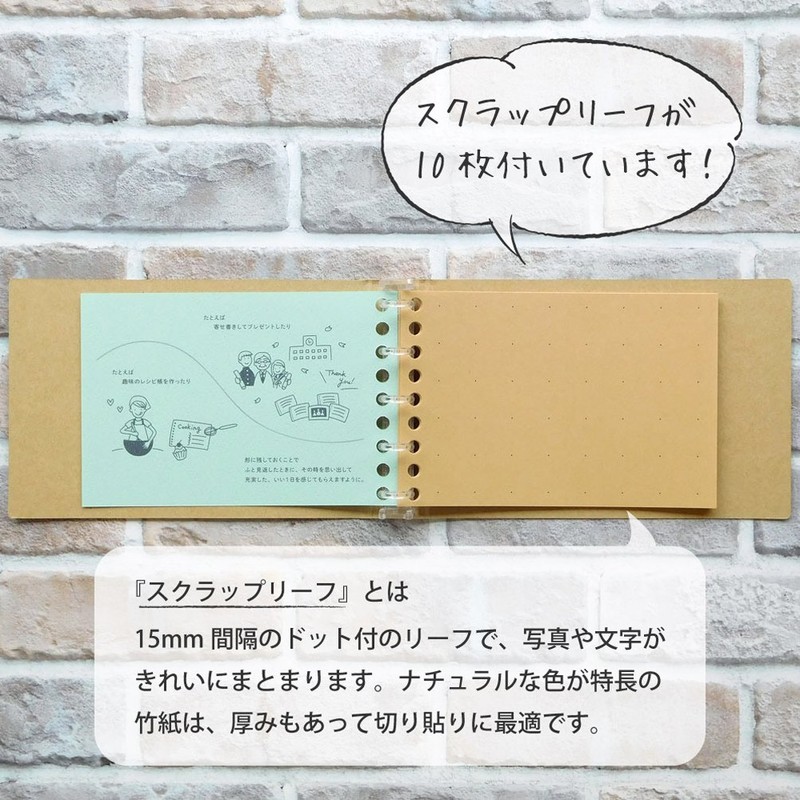 スクラップリーフが
10枚付いています!
たとえば
寄せ書きしてプレゼントしたり
たとえば
趣味のレシピ帳を作ったり
Thank
you!
Cooking
形に残しておくことで
ふと見返したときに、その時を思い出して
充実した、いい1日を感じてもらえますように。
『スクラップリーフ』とは
15mm間隔のドット付のリーフで、写真や文字が
きれいにまとまります。ナチュラルな色が特長の
竹紙は、厚みもあって切り貼りに最適です。